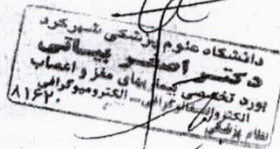 دانشگاه علوم پزشکی شهرکرد
دکتر اصغر بیاتی
بورد تخصصی بیماریهای مغز و اعصاب
الکتروآنسفالوگرافی - الکترومیوگرافی
نظام پزشکی
۸۱۶۲۰